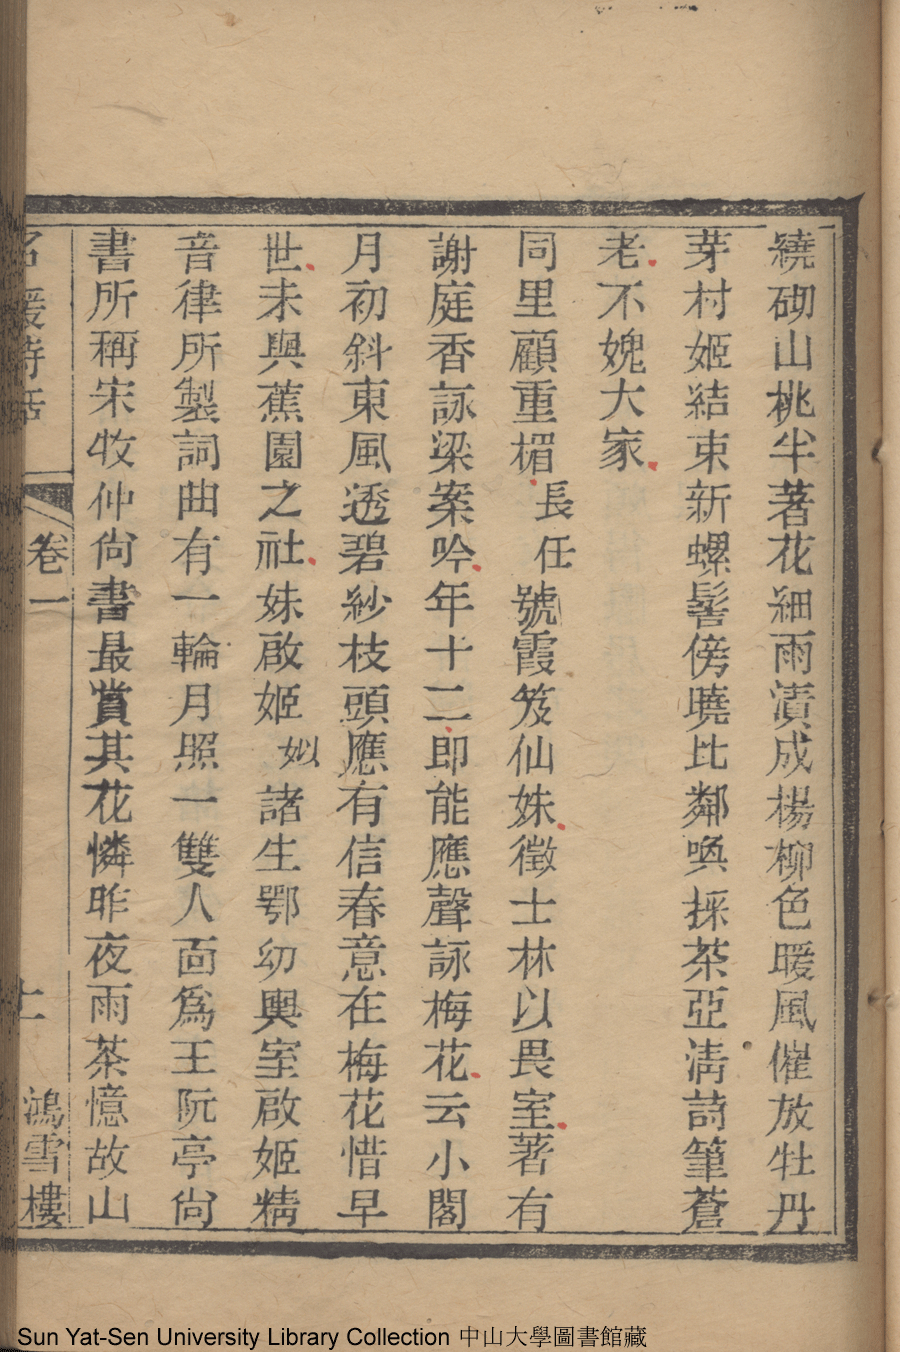 繞砌山桃半著花細雨漬成楊柳色暖風催放牡丹
芽村姬結束新螺髻傍曉比鄰喚採茶亞清詩筆蒼
老不媿大家
同里顧重楣長任號霞笈仙姝徵士林以畏室著有
謝庭香詠梁案吟年十二即能應聲詠梅花云小閣
月初斜東風透碧紗枝頭應有信春意在梅花惜早
世未與蕉園之社妹啟姬姒諸生鄂幼輿室啟姬精
音律所製詞曲有一輪月照一雙人面為王阮亭尙
書所稱宋牧仲尙書最賞其花憐昨夜雨茶憶故山
名媛詩話
卷一
十一
鴻雪樓
Sun Yat-Sen University Library Collection 中山大學圖書館藏